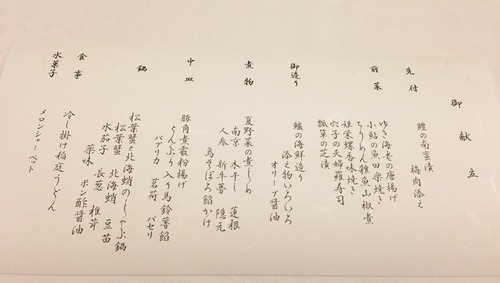 御献立
先付
鱧の南蛮漬
梅肉添え
前菜
ゆき海老の唐揚げ
小鮎の魚田楽焼き
ちりめん雑魚山椒煮
姫栄螺香味焼き
穴子の夫婦羅寿司
瓢箪の芝漬
御造り
鱸の海鮮造り
添え物いろいろ
オリーブ醤油
煮物
夏野菜の煮しめ
南京 木干し 蓮根
人参 新牛蒡 隠元
鳥そぼろ餡かけ
中皿
豚角煮穀粉揚げ
とんぶり入り馬鈴薯餡
パプリカ 茗荷 パセリ
鍋
松葉蟹と北海蛸のしゃぶ鍋
松葉蟹 北海蛸 豆苗
水茄子 長葱 椎茸
薬味 ポン酢醤油
食事
冷し掛け稲庭うどん
水菓子
メロンシャーベット